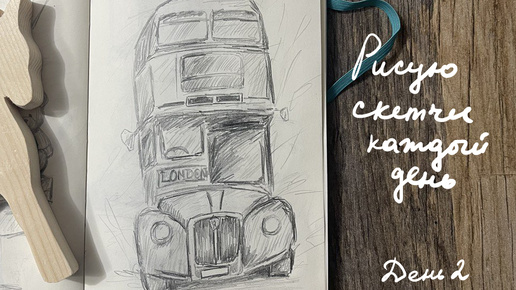 LONDEN
Рисую
скетчи
каждый
день
День 2